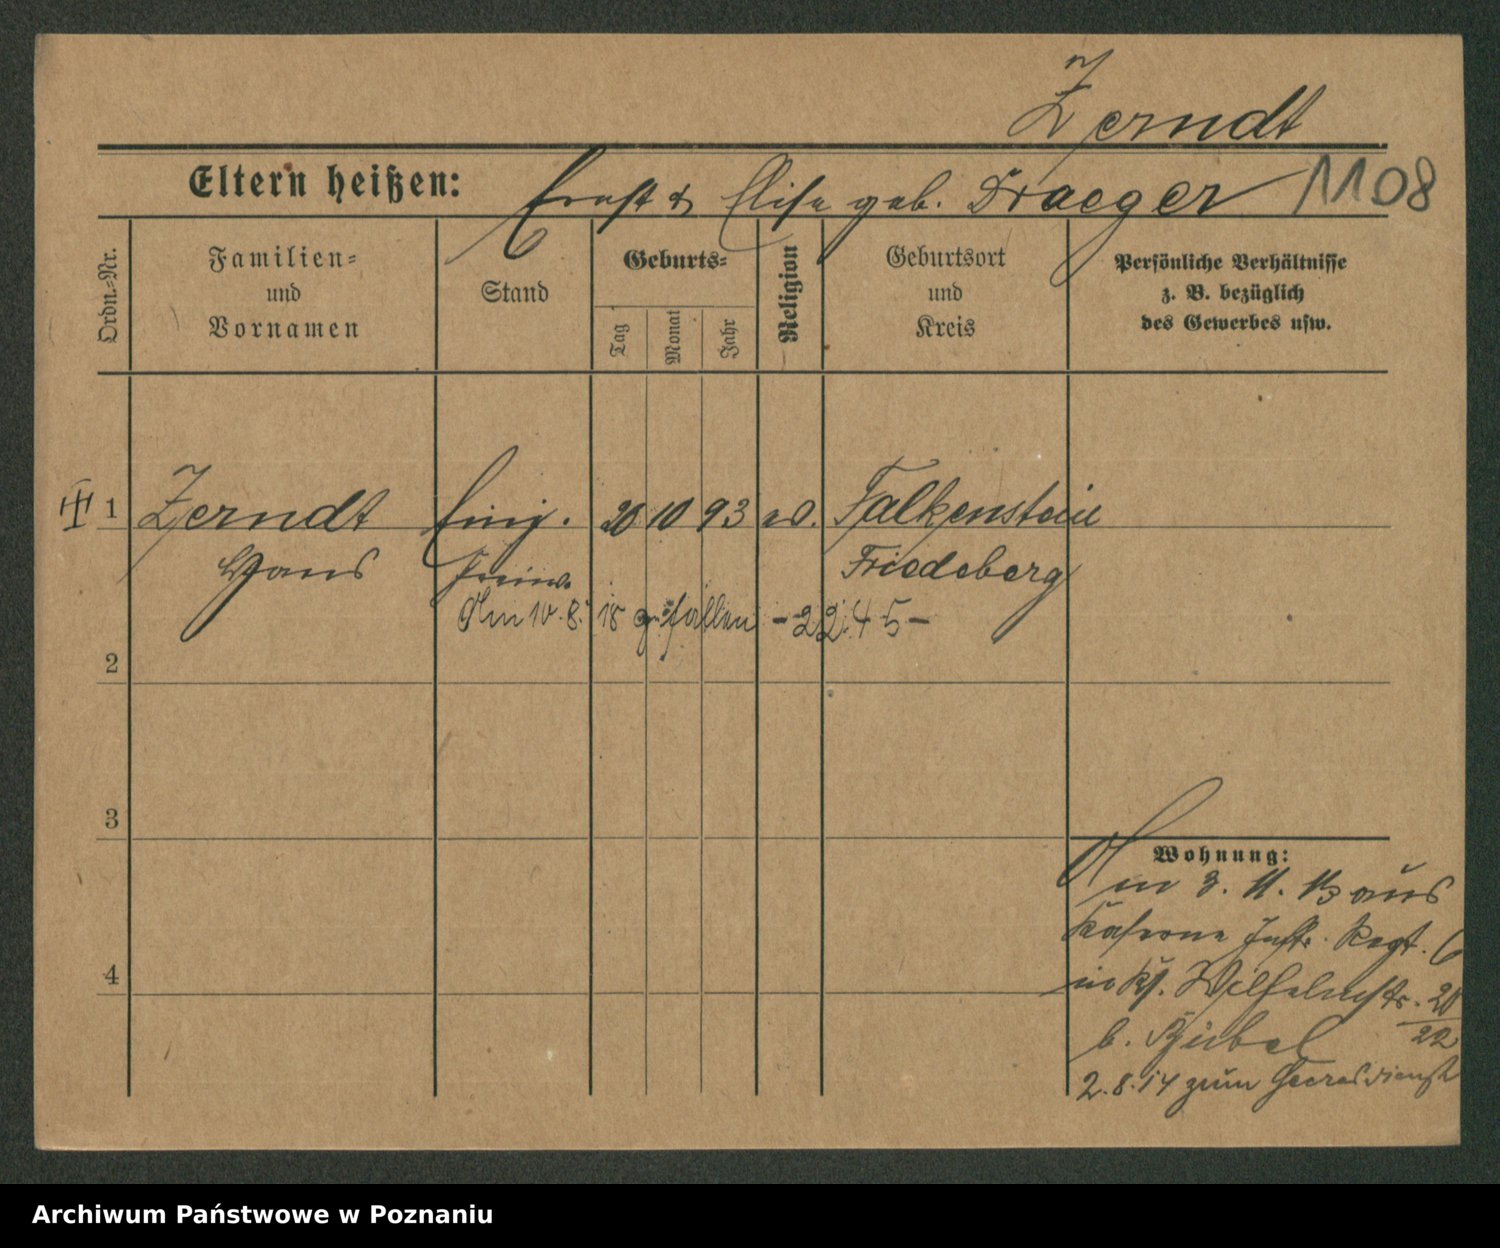 Zerndt
Eltern heißen: Ernst & Elise geb. Draeger 1108
Ordn.-Nr.
Familien=
und
Vornamen
Stand
Geburts=
Tag
Monat
Jahr
Religion
Geburtsort
und
Kreis
Persönliche Verhältnisse
z. B. bezüglich
des Gewerbes usw.
1 Zerndt Einj. 20 10 93 ev. Falkenstein
Hans Freiw. Friedeberg
Am 10.8.18 gefallen -2245-
2
3
Wohnung:
Am 3. 11. 13 aus
Kaserne Inftr. Regt. 6
in Wilhelmstr. 20/22
b.
4
2.8.14 zum Heeresdienst
Archiwum Państwowe w Poznaniu